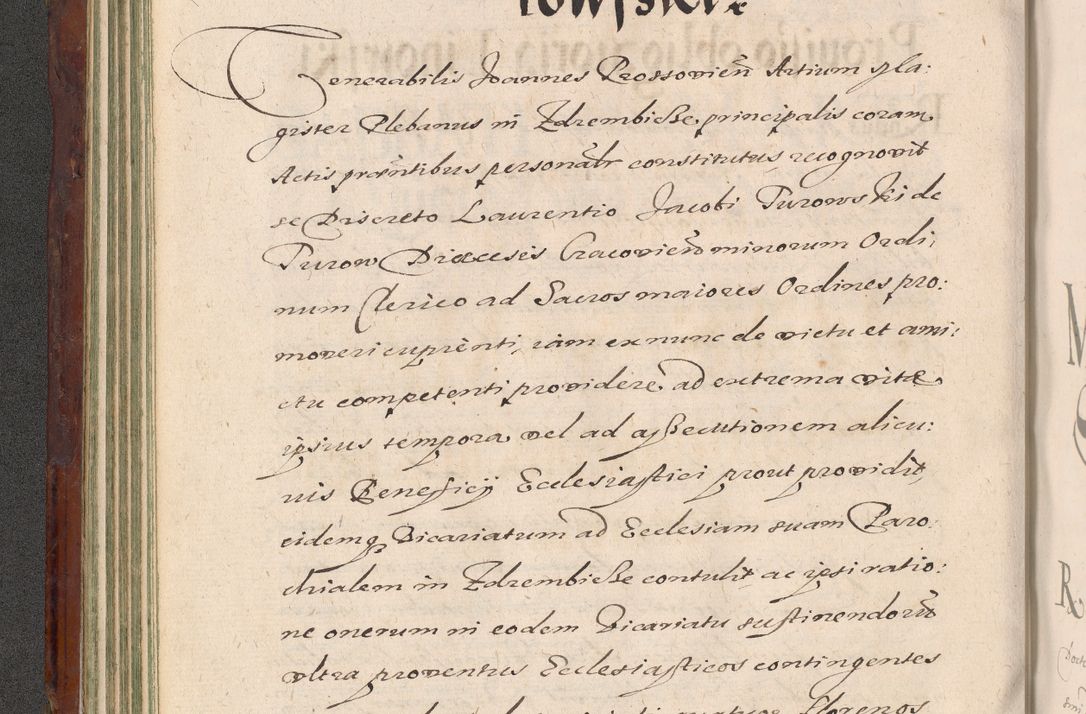 Venerabilis Joannes Prossovień Artium Ma:
gister Plebanus in Zdrembicße principalis coram
Actis præntibus personalr constitutus recognovit
se Discreto Laurentio Jacobi Turowski de
Turow Diæcesis Cracovień minorum Ordi,
num Clerico ad Sacros maiores Ordines pro:
moveri cupienti, iam ex nunc de victu et ami:
ctu competenti providere, ad extrema vitæ
ipsius tempora vel ad assecutionem alicu:
uis Beneficij Ecclesiastici prout providit,
eidemq Vicariatum ad Ecclesiam suam Paro:
chialem in Zdrembicße contulit ac ipsi ratio:
ne onerum in eodem Vicariatu sustinendorū
ultra proventus Ecclesiasticos contingentes
Florenos